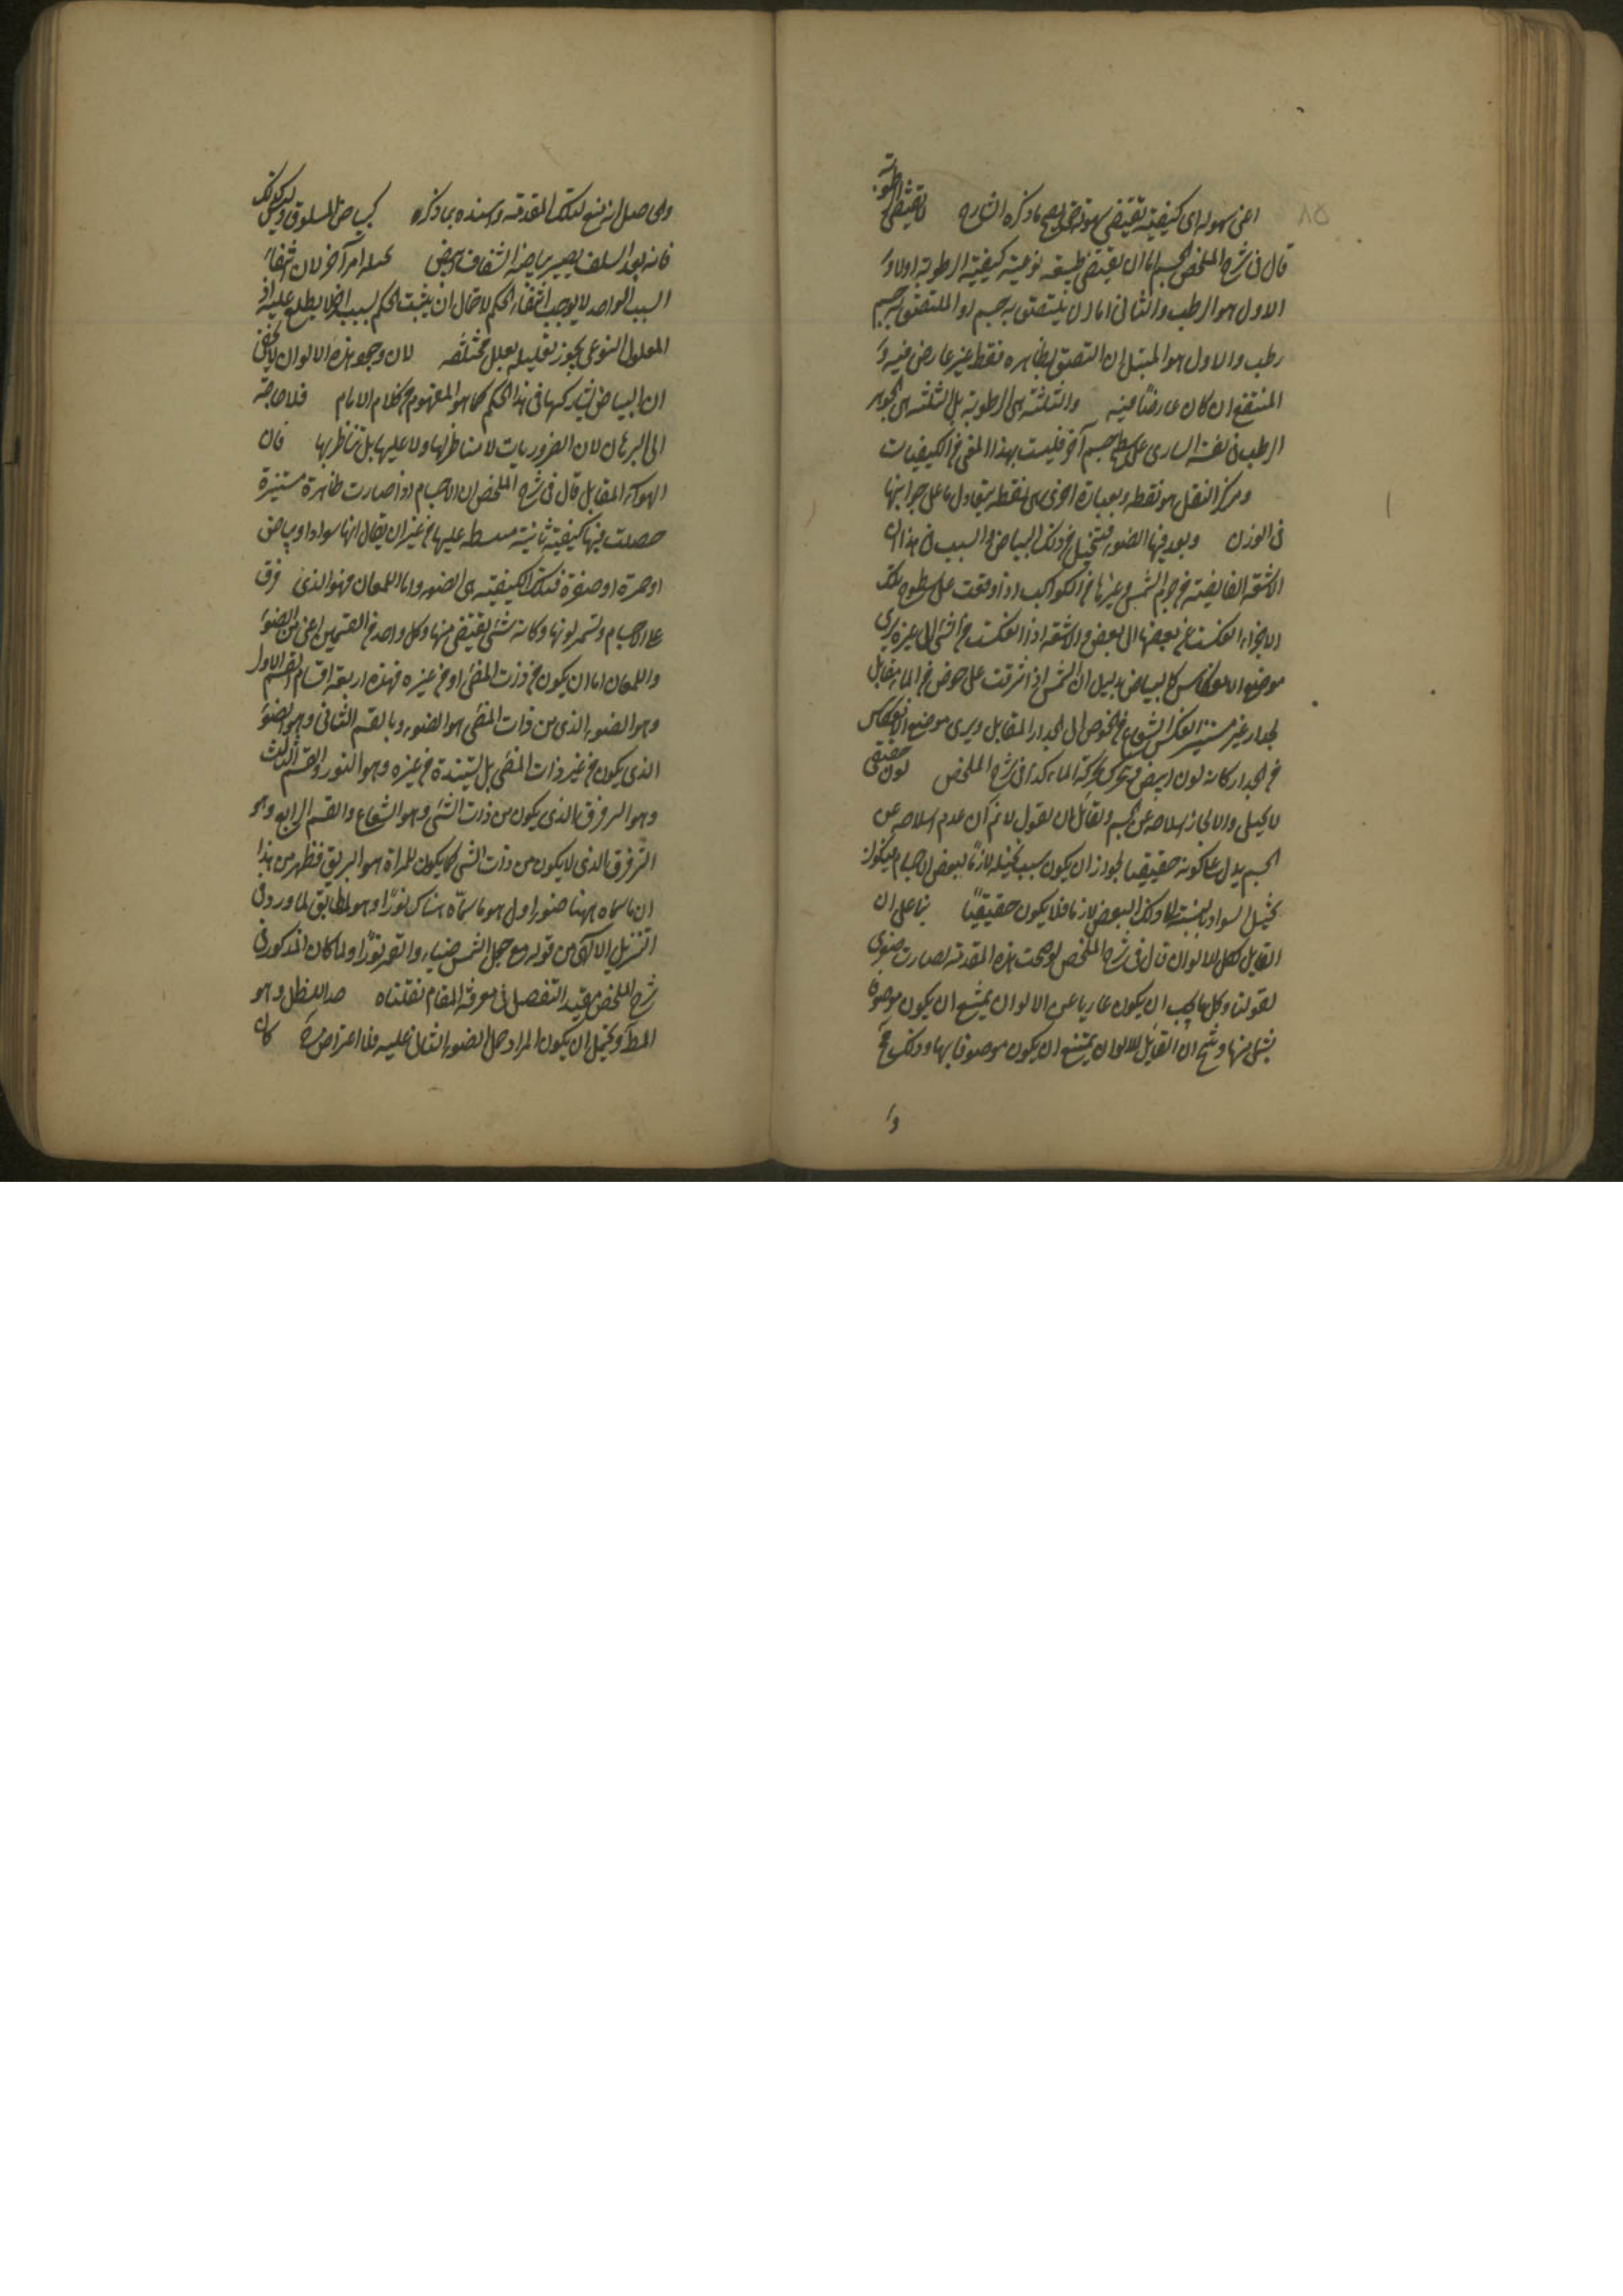 ٨٥
اعنى سهولة اى كيفية تقتضى سهولة ما ذكره الشارح تقتضى الرطوبة
قال فى شرح الملخص الجسم اما ان يقتضى طبيعته نوعية كيفية الرطوبة اولا و
الاول هو الرطب والثانى اما ان يلتصق به جسم او الملتصق به جسم
رطب والاول هو المبتل ان التصق بظاهره فقط غير عارض فيه و
المنتقع ان كان عارضا فيه والثلثة هى الرطوبة بل الثلثة هى الجوهر
الرطب فى نفسه السارى على سطح جسم آخر فليست بهذا المعنى من الكيفيات
ومركز الثقل هو نقطة وبعبارة اخرى هى نقطة يتعادل ما على جوانبها
فى الوزن وبعد فيها الضوء فتخيل من ذلك البياض والسبب فى هذا ان
الاشعة الفايضة من جرم الشمس وغيرها من الكواكب اذا وقعت على سطوح تلك
الاجزاء انعكست من بعضها الى بعض والاشعة اذا انعكست من شئ الى غيره يرى
موضع الانعكاس كالبياض بدليل ان الشمس اذا اشرقت على حوض من الماء مقابل
لجدار غير مستنير انعكس الشعاع من الحوض الى الجدار المقابل ويرى موضع الانعكاس
من الجدار كانه لون ابيض متحرك بحركة الماء كذا فى شرح الملخص لون حقيقى
لا تخيلى والا لجاز انسلاخه عن الجسم ولقائل ان يقول لا نم ان عدم انسلاخه عن
الجسم يدل على كونه حقيقيا لجواز ان يكون سبب تخيله لازما لبعض الاجسام فيكون
تخيل السواد بالنسبة الى ذلك البعض لازما فلا يكون حقيقيا بناء على ان
القابل لكل الالوان قال فى شرح الملخص لو صحت هذه المقدمة لصارت صغرى
لقولنا وكل ما يجب ان يكون عاريا عن الالوان يمتنع ان يكون موصوفا
بشئ منها وينتج ان القابل للالوان يمتنع ان يكون موصوفا بها وذلك مح
وا
والحاصل انه منع لتلك المقدمة وسنده بما ذكره كبياض المسلوق وليس كذلك
فانه بعد السلق يصير بياضه الشفاف ابيض تخيله امر آخر لان انتفاء
السبب الواحد لا يوجب انتفاء الحكم لاحتمال ان يثبت الحكم لسبب آخر لا يطلع عليه اذ
المعلول النوعى يجوز تعليله بعلل مختلفة لان وجود هذه الالوان لا يخفى
ان البياض يشاركها فى هذا الحكم كما هو المفهوم من كلام الامام فلا حاجة
الى البرهان لان الضروريات لا مناظر لها ولا عليها بل تناظر بها فان
الهواء المقابل قال فى شرح الملخص ان الاجسام اذا صارت ظاهرة مستنيرة
حصلت فيها كيفية ثانية منبسطة عليها من غير ان يقال انها سواد او بياض
او حمرة او صفرة فتلك الكيفية هى الضوء واما اللمعان فهو الذى ترقرق
على الاجسام ويستر لونها وكانه شئ يفيض منها وكل واحد من القسمين اعنى الضوء
واللمعان اما ان يكون من ذات المضئ او من غيره فهذه اربعة اقسام القسم الاول
وهو الضوء الذى من ذات المضئ هو الضوء وبالقسم الثانى وهو الضوء
الذى يكون من غير ذات المضئ بل يستفيده من غيره وهو النور والقسم الثالث
وهو الترقرق الذى يكون من ذات الشئ وهو الشعاع والقسم الرابع وهو
الترقرق الذى لا يكون من ذات الشئ كما يكون للمرآة هو البريق فظهر من هذا
ان ما سماه ههنا ضوء اول هو ما سماه هناك نورا وهو المطابق لما ورد فى
التنزيل الالهى من قوله تع جعل الشمس ضياء والقمر نورا ولما كان المذكور فى
شرح الملخص مفيد التفصيل فى معرفة المقام نقلناه حد الظل وهو
المط ويحتمل ان يكون المراد حمل الضوء الثانى عليه فلا اعتراض كان